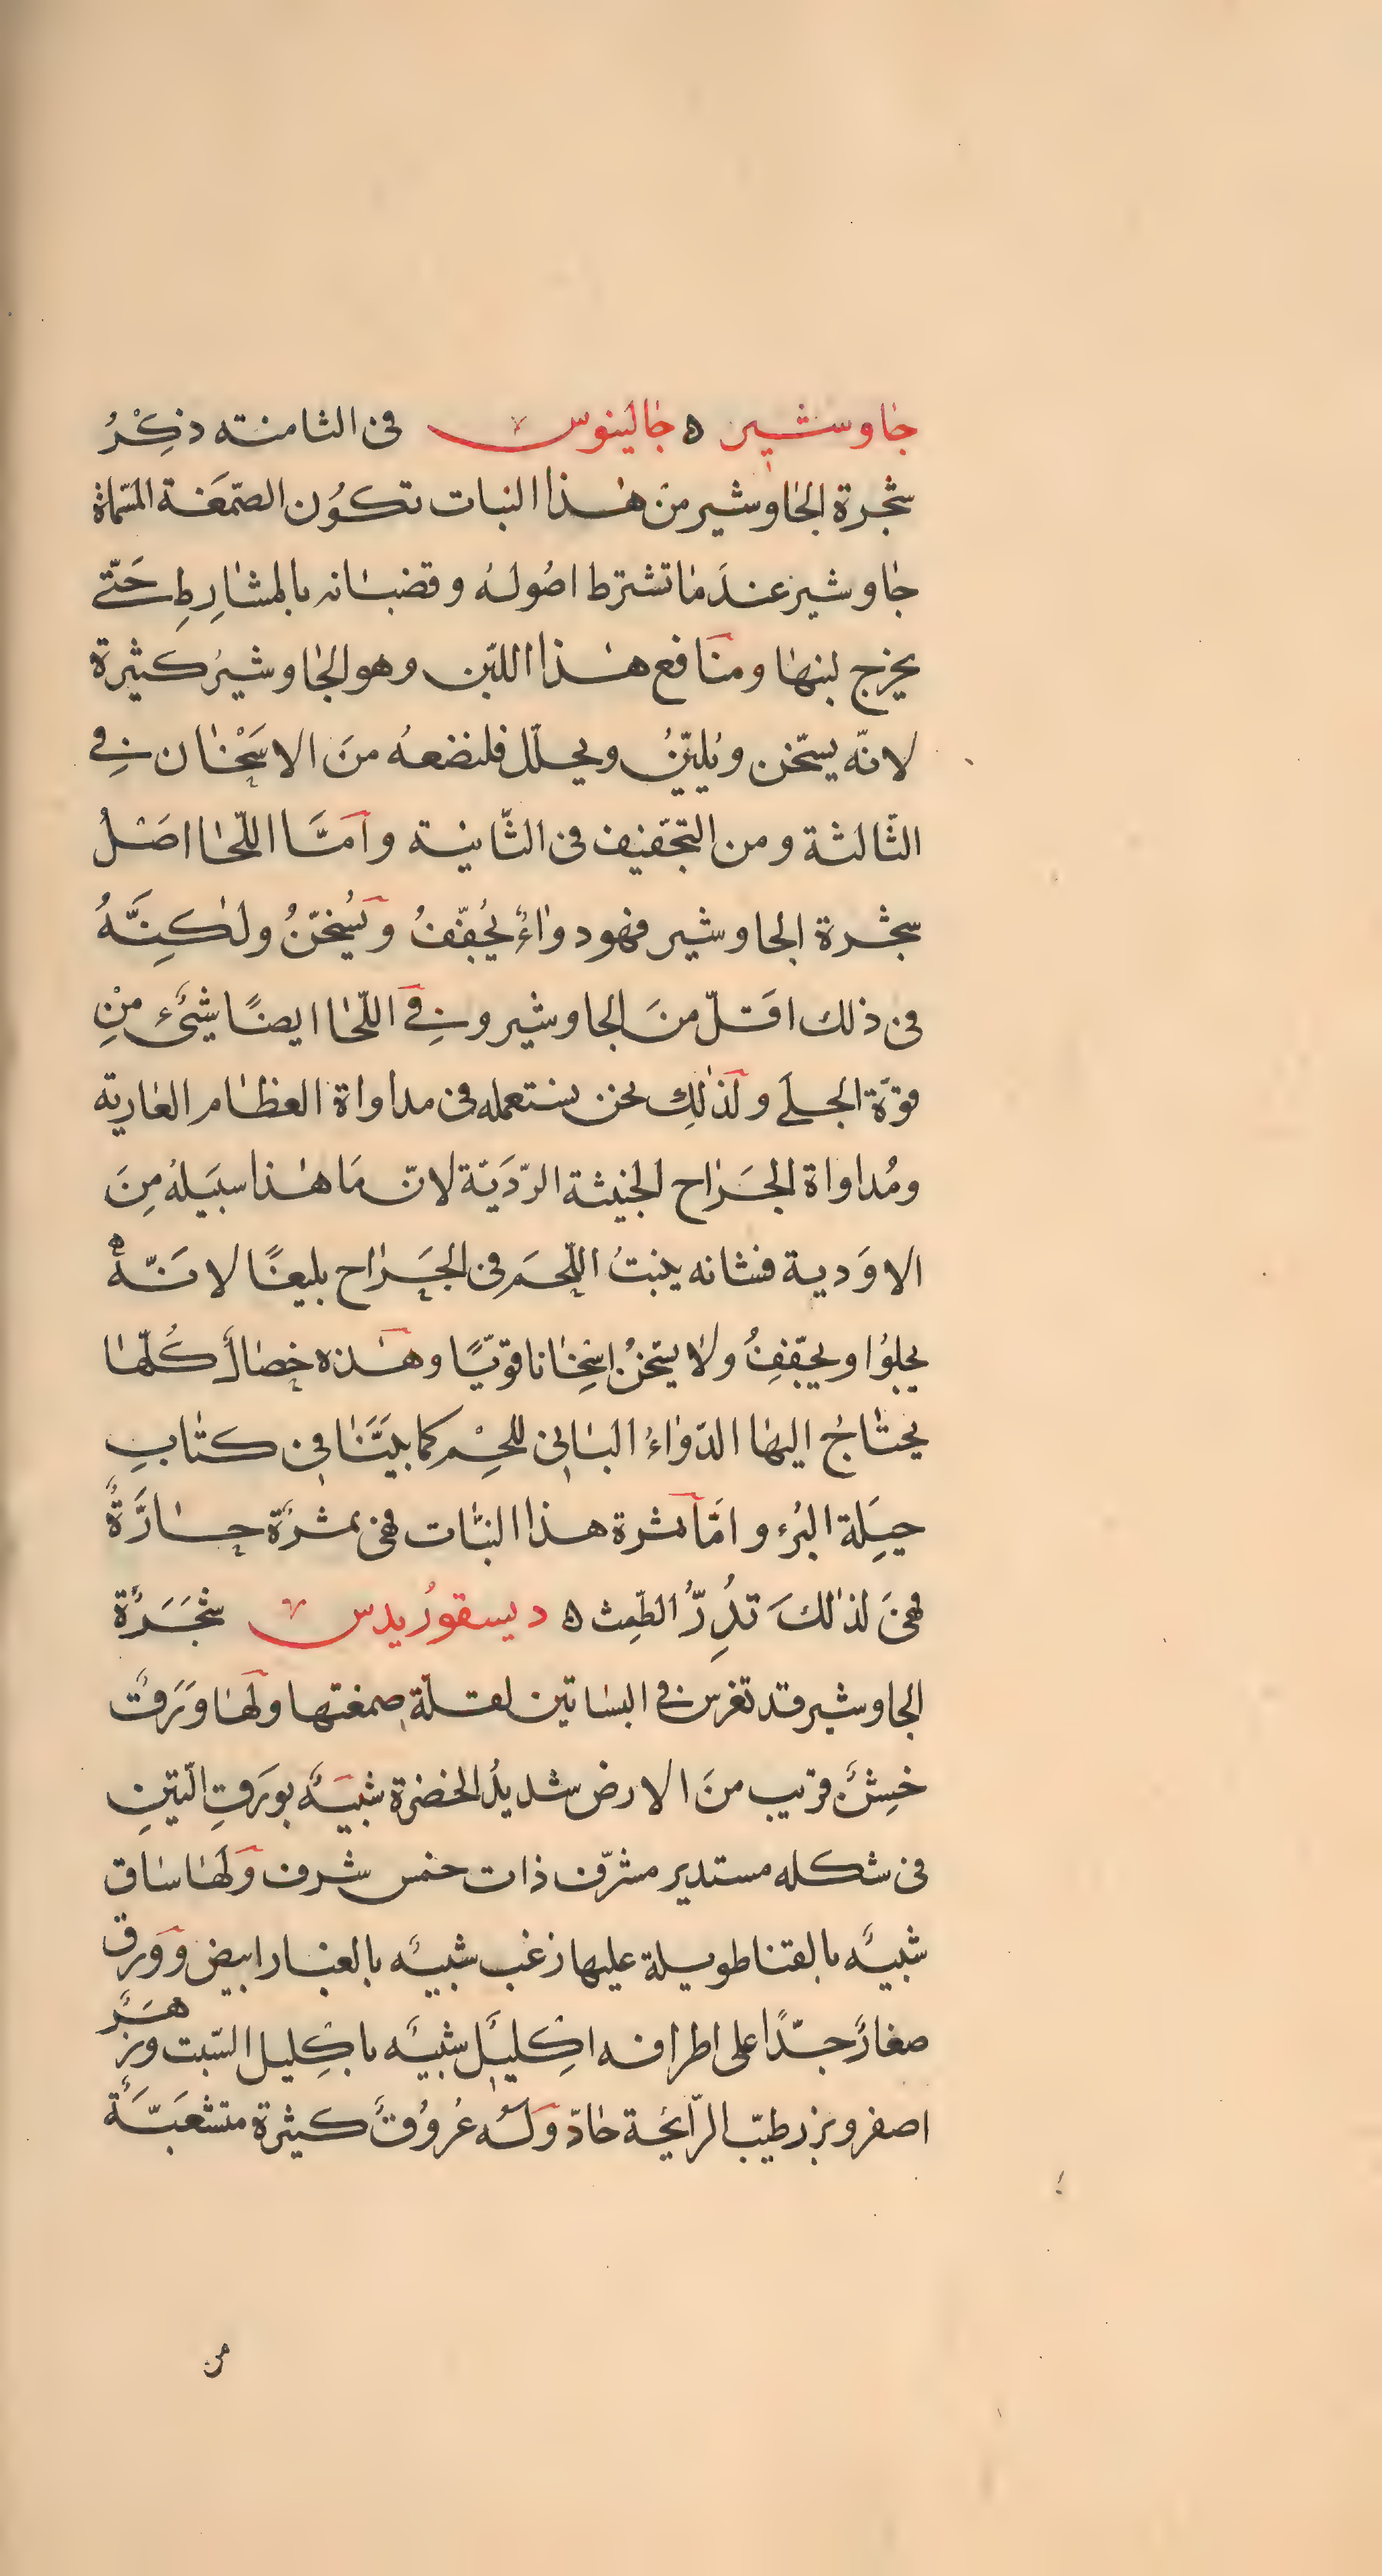 جاوشير ه جالينوس في الثامنة ذِكْرُ
شجرة الجاوشير من هذا النبات تكوُن الصّمَغة المسّماة
جاوشير عندَما تشترط اصُوله وقضبانه بالمشارِطِ حَتّى
يخرج لبنها ومنافع هذا اللبن وهو الجاوشيرُ كثيرة
لانّه يسخّن ويُليّنُ ويحلّل فلنضعه منَ الاسَخْان في
الثّالثة ومن التجّفيف في الثّانية وامَّا اللّحا اصَلُ
شجرة الجاوشير فهو دواءٌ يُجفّفُ ويُسخّنُ ولكِنَّهُ
في ذلك اقلّ منَ الجاوشير وفي اللّحا ايضًا شَيْء منِْ
قوّة الجلَى ولذلِك نحن نستعمله في مداواة العظام العارية
ومُداواة الجَراح الخبيثة الردّيَة لانّ مَا هذا سبَيله مِنَ
الاوَدية فشانه ينبتُ اللّحمَ في الجَراح بليغًا لانّهُ
يجلوُا ويجّففِ ولا يسخّنُ اسِخْانا قوّيًا وهذه خِصالٌ كُلّها
يحتاجُ اليها الدّواءُ البانى للحِمْ كما بيَّنَا في كتابِ
حيِلَة البُرء وامَّا ثمرة هذا النبّات فهى ثمرَةٌ حارَّةٌ
فهىَ لذلكَ تدُرِّ الطّمِث ه ديسقورُيدس شَجَرَةُ
الجاوشير قد تغرس في البساتين لقلّة صمغتها ولَها وَرَقٌ
خشِنٌ قرَيب منَ الارض شديدُ الخضرة شبيَهٌ بورَقِ التّينِ
في شكله مستدير مشرّف ذات خمس شرف ولَها ساق
شبيهٌ بالقنا طويلة عليها زغب شبيهٌ بالغبار ابيض وورق
صغارٌ جدّاً على اطرافه اكِليلٌ شبيهٌ باكِليل الشّبت وزَهَرٌ
اصفر وبزر طيّب الرّايحَة حادّ ولَهُ عُروُقٌ كثيرة متشعبَّةٌ
من